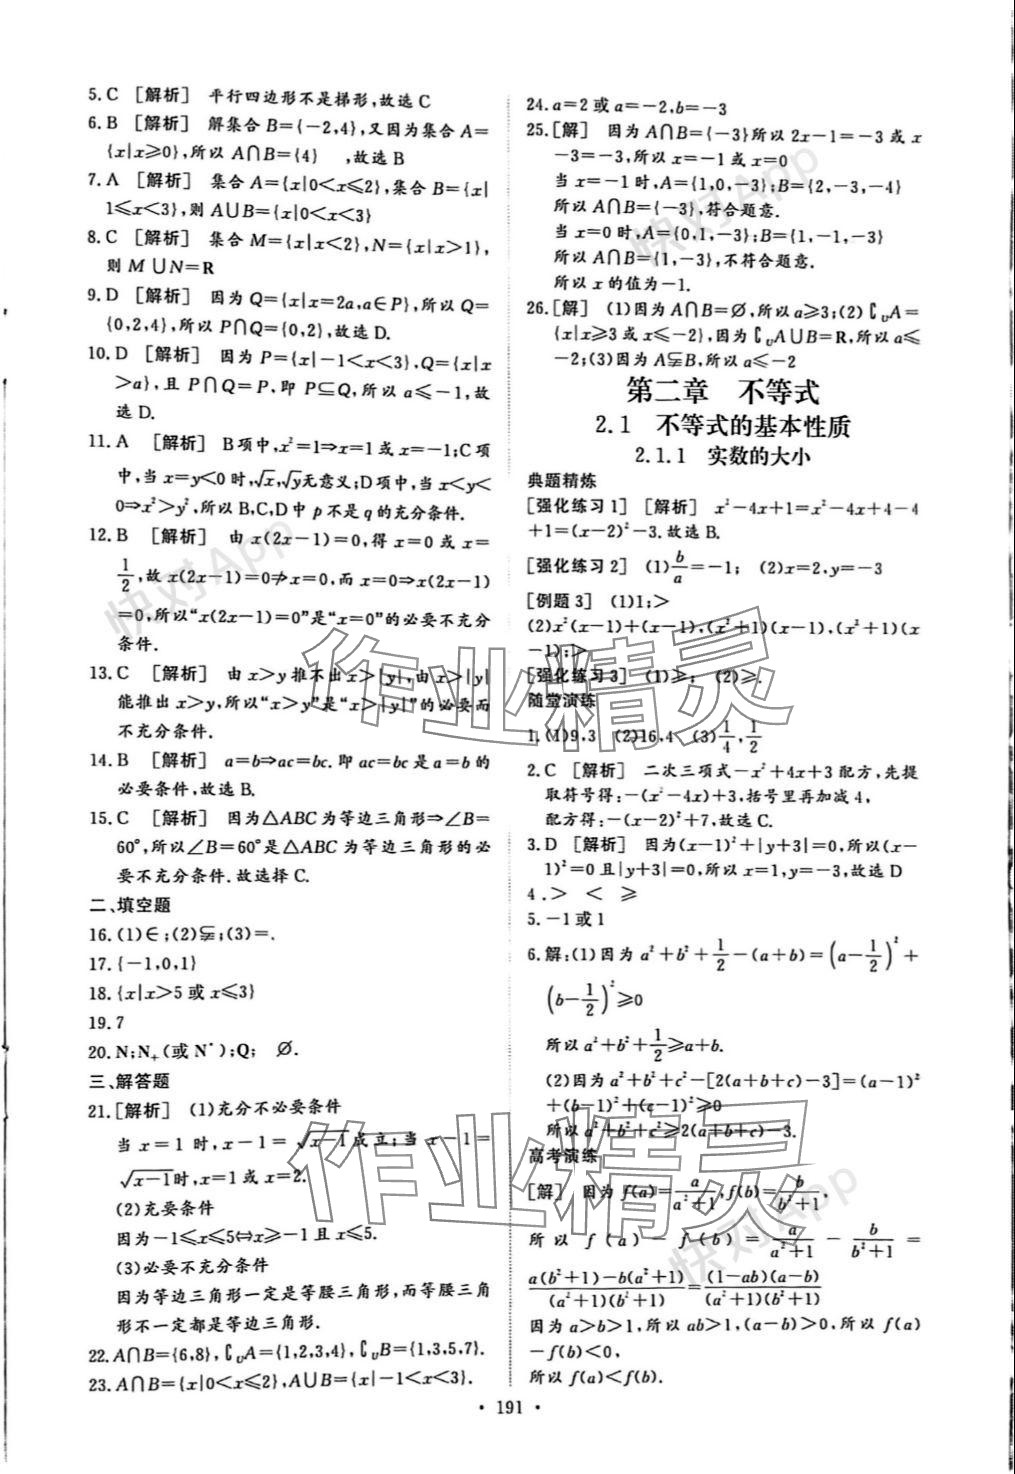 5. C [解析] 平行四边形不是梯形,故选C
6. B [解析] 解集合B={-2,4},又因为集合A=
{x|x⩾0},所以A⋂B={4} ,故选B
7. A [解析] 集合A={x|0<x⩽2},集合B={x|
1⩽x<3},则A⋃B={x|0<x<3}
8. C [解析] 集合M={x|x<2},N={x|x>1},
则M⋃N=R
9. D [解析] 因为Q={x|x=2a,a∈P},所以Q=
{0,2,4},所以P⋂Q={0,2},故选D.
10. D [解析] 因为P={x|-1<x<3},Q={x|x
>a},且P⋂Q=P,即P⊆Q,所以a⩽-1,故
选D.
11. A [解析] B项中,x²=1⇒x=1或x=-1;C项
中,当x=y<0时,√x,√y无意义;D项中,当x<y<
0⇒x²>y²,所以B,C,D中p不是q的充分条件.
12. B [解析] 由x(2x-1)=0,得x=0或x=
1/2,故x(2x-1)=0⇏x=0,而x=0⇒x(2x-1)
=0,所以“x(2x-1)=0”是“x=0”的必要不充分
条件.
13. C [解析] 由x>y推不出x>|y|,由x>|y|
能推出x>y,所以“x>y”是“x>|y|”的必要而
不充分条件.
14. B [解析] a=b⇒ac=bc.即ac=bc是a=b的
必要条件,故选B.
15. C [解析] 因为△ABC为等边三角形⇒∠B=
60°,所以∠B=60°是△ABC为等边三角形的必
要不充分条件.故选择C.
二、填空题
16. (1)∈;(2)⫋;(3)=.
17. {-1,0,1}
18. {x|x>5或x⩽3}
19. 7
20. N;N₊(或N*);Q; ∅.
三、解答题
21. [解析] (1)充分不必要条件
当x=1时,x-1=√(x-1)成立;当x-1=
√(x-1)时,x=1或x=2.
(2)充要条件
因为-1⩽x⩽5⇔x⩾-1且x⩽5.
(3)必要不充分条件
因为等边三角形一定是等腰三角形,而等腰三角
形不一定都是等边三角形.
22. A⋂B={6,8},∁UA={1,2,3,4},∁UB={1,3,5,7}.
23. A⋂B={x|0<x⩽2},A⋃B={x|-1<x<3}.
24. a=2或a=-2,b=-3
25. [解] 因为A⋂B={-3}所以2x-1=-3或x
-3=-3,所以x=-1或x=0
当x=-1时,A={1,0,-3};B={2,-3,-4}
所以A⋂B={-3},符合题意.
当x=0时,A={0,1,-3};B={1,-1,-3}
所以A⋂B={1,-3},不符合题意.
所以x的值为-1.
26. [解] (1)因为A⋂B=∅,所以a⩾3;(2)∁UA=
{x|x⩾3或x⩽-2},因为∁UA⋃B=R,所以a⩽
-2;(3)因为A⫋B,所以a⩽-2
第二章 不等式
2.1 不等式的基本性质
2.1.1 实数的大小
典题精炼
[强化练习1] [解析] x²-4x+1=x²-4x+4-4
+1=(x-2)²-3.故选B.
[强化练习2] (1)b/a=-1; (2)x=2,y=-3
[例题3] (1)1;>
(2)x²(x-1)+(x-1),(x²+1)(x-1),(x²+1)(x
-1);>
[强化练习3] (1)⩾; (2)⩾.
随堂演练
1. (1)9,3 (2)16,4 (3)1/4,1/2
2. C [解析] 二次三项式-x²+4x+3配方,先提
取符号得:-(x²-4x)+3,括号里再加减4,
配方得:-(x-2)²+7,故选C.
3. D [解析] 因为(x-1)²+|y+3|=0,所以(x-
1)²=0且|y+3|=0,所以x=1,y=-3,故选D
4. > < ⩾
5. -1或1
6. 解:(1)因为a²+b²+1/2-(a+b)=(a-1/2)²+
(b-1/2)²⩾0
所以a²+b²+1/2⩾a+b.
(2)因为a²+b²+c²-[2(a+b+c)-3]=(a-1)²
+(b-1)²+(c-1)²⩾0
所以a²+b²+c²⩾2(a+b+c)-3.
高考演练
[解] 因为f(a)=a/(a²+1),f(b)=b/(b²+1),
所以f(a)-f(b)=a/(a²+1)-b/(b²+1)=
(a(b²+1)-b(a²+1))/((a²+1)(b²+1))=((1-ab)(a-b))/((a²+1)(b²+1))
因为a>b>1,所以ab>1,(a-b)>0,所以f(a)
-f(b)<0,
所以f(a)<f(b).
• 191 •
快对App
快对App
快对App
作业精灵
作业精灵